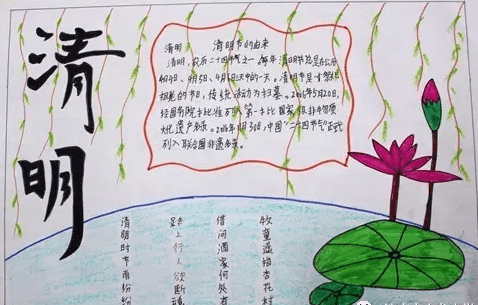 清明
清明: 清明节的由来
清明,农历二十四节气之一,每年清明节总是在公历
4月4日、4月5日、4月6日中的一天。清明节是
祖先的节日,传统活动为扫墓。2006年5月20日,
经国务院批准列入第一批国家级非物质
文化遗产名录。2016年11月30日,中国“二十四节气”正式
列入联合国非遗名录。
清明时节雨纷
路上行人欲断魂
借问酒家何处有
牧童遥指杏花村